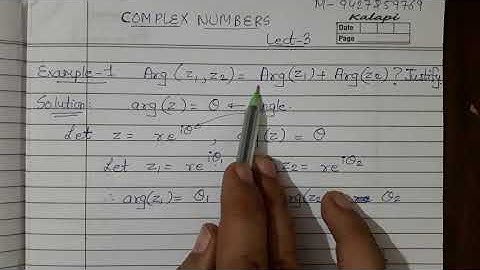 M- 9427859769
COMPLEX NUMBERS
Kalapi
Lect-3
Date
Page
Example-1 Arg (z1, z2) = Arg(z1) + Arg(z2) ? Justify
Solution: arg(z) = θ ← angle.
Let z = re^iθ, arg(z) = θ
Let z1 = re^iθ1 z2 = re^iθ2
∴ arg(z1) = θ1 θ2